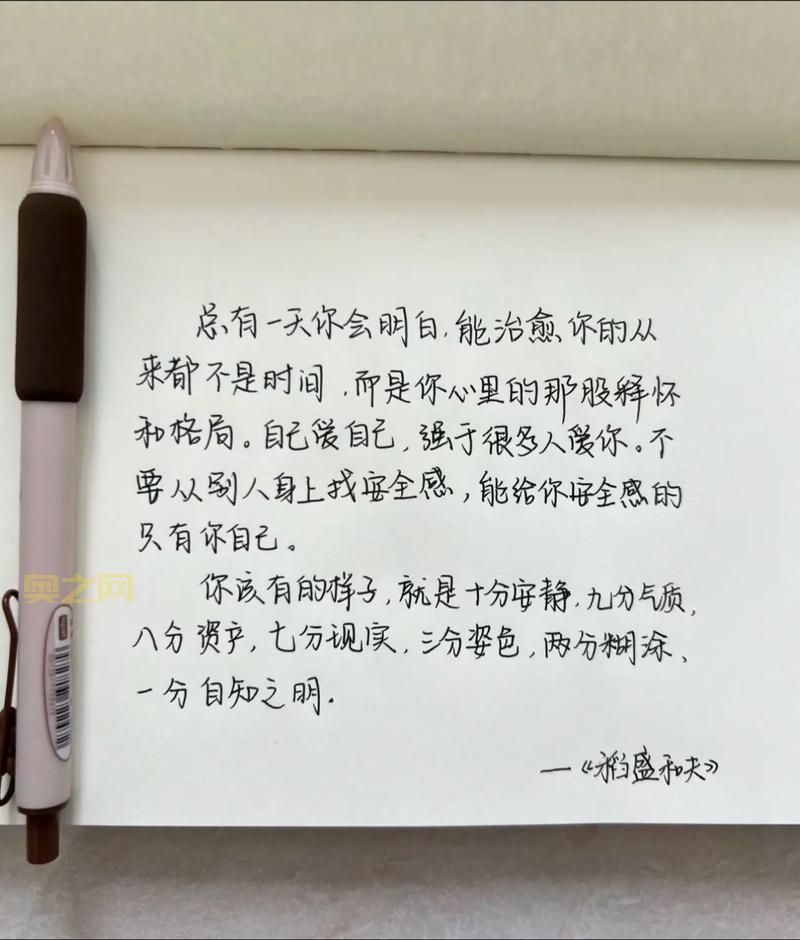 总有一天你会明白,能治愈你的从
来都不是时间,而是你心里的那股释怀
和格局。自己爱自己,强于很多人爱你。不
要从别人身上找安全感,能给你安全感的
只有你自己。
你该有的样子,就是十分安静,九分气质,
八分资产,七分现实,三分姿色,两分糊涂、
一分自知之明.
—《稻盛和夫》
奥之网